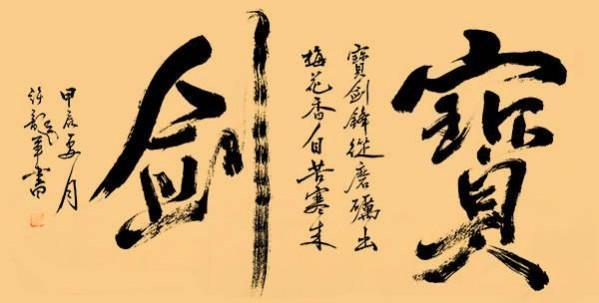 寶
寶劍鋒從磨礪出
梅花香自苦寒來
劍
甲辰夏月
許 軍書